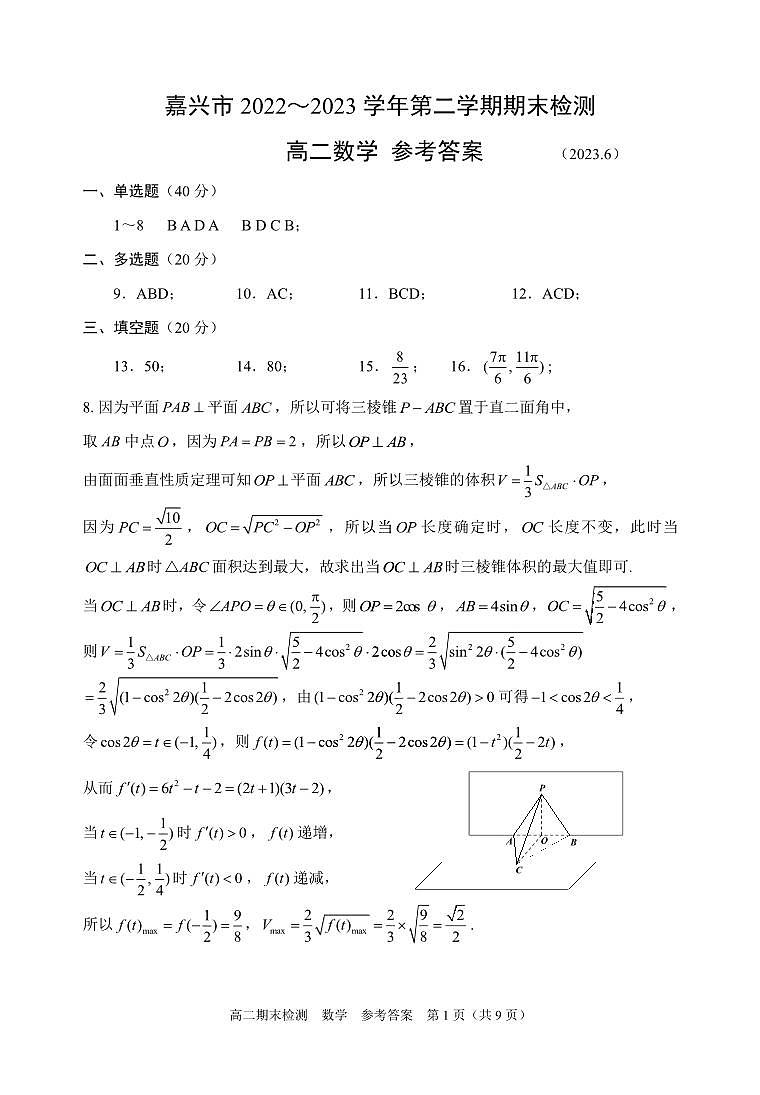 嘉兴市 2022～2023 学年第二学期期末检测
高二数学 参考答案 （2023.6）
一、单选题（40 分）
1～8 B A D A B D C B；
二、多选题（20 分）
9．ABD； 10．AC； 11．BCD； 12．ACD；
三、填空题（20 分）
13．50； 14．80； 15．8/23； 16．(7π/6, 11π/6)；
8. 因为平面 PAB ⊥ 平面 ABC，所以可将三棱锥 P − ABC 置于直二面角中，
取 AB 中点 O，因为 PA = PB = 2，所以 OP ⊥ AB，
由面面垂直性质定理可知 OP ⊥ 平面 ABC，所以三棱锥的体积 V = 1/3 S△ABC · OP，
因为 PC = √10/2，OC = √(PC² − OP²)，所以当 OP 长度确定时，OC 长度不变，此时当
OC ⊥ AB 时 △ABC 面积达到最大，故求出当 OC ⊥ AB 时三棱锥体积的最大值即可.
当 OC ⊥ AB 时，令 ∠APO = θ ∈ (0, π/2)，则 OP = 2cos θ，AB = 4sin θ，OC = √(5/2 − 4cos² θ)，
则 V = 1/3 S△ABC · OP = 1/3 · 2sin θ · √(5/2 − 4cos² θ) · 2cos θ = 2/3 √(sin² 2θ · (5/2 − 4cos² θ))
= 2/3 √((1 − cos² 2θ)(1/2 − 2cos 2θ))，由 (1 − cos² 2θ)(1/2 − 2cos 2θ) > 0 可得 −1 < cos 2θ < 1/4，
令 cos 2θ = t ∈ (−1, 1/4)，则 f(t) = (1 − cos² 2θ)(1/2 − 2cos 2θ) = (1 − t²)(1/2 − 2t)，
从而 f′(t) = 6t² − t − 2 = (2t + 1)(3t − 2)，
当 t ∈ (−1, −1/2) 时 f′(t) > 0，f(t) 递增，
当 t ∈ (−1/2, 1/4) 时 f′(t) < 0，f(t) 递减，
所以 f(t)max = f(−1/2) = 9/8，Vmax = 2/3 √(f(t)max) = 2/3 × √(9/8) = √2/2．
P
A O B
C
高二期末检测 数学 参考答案 第 1 页（共 9 页）